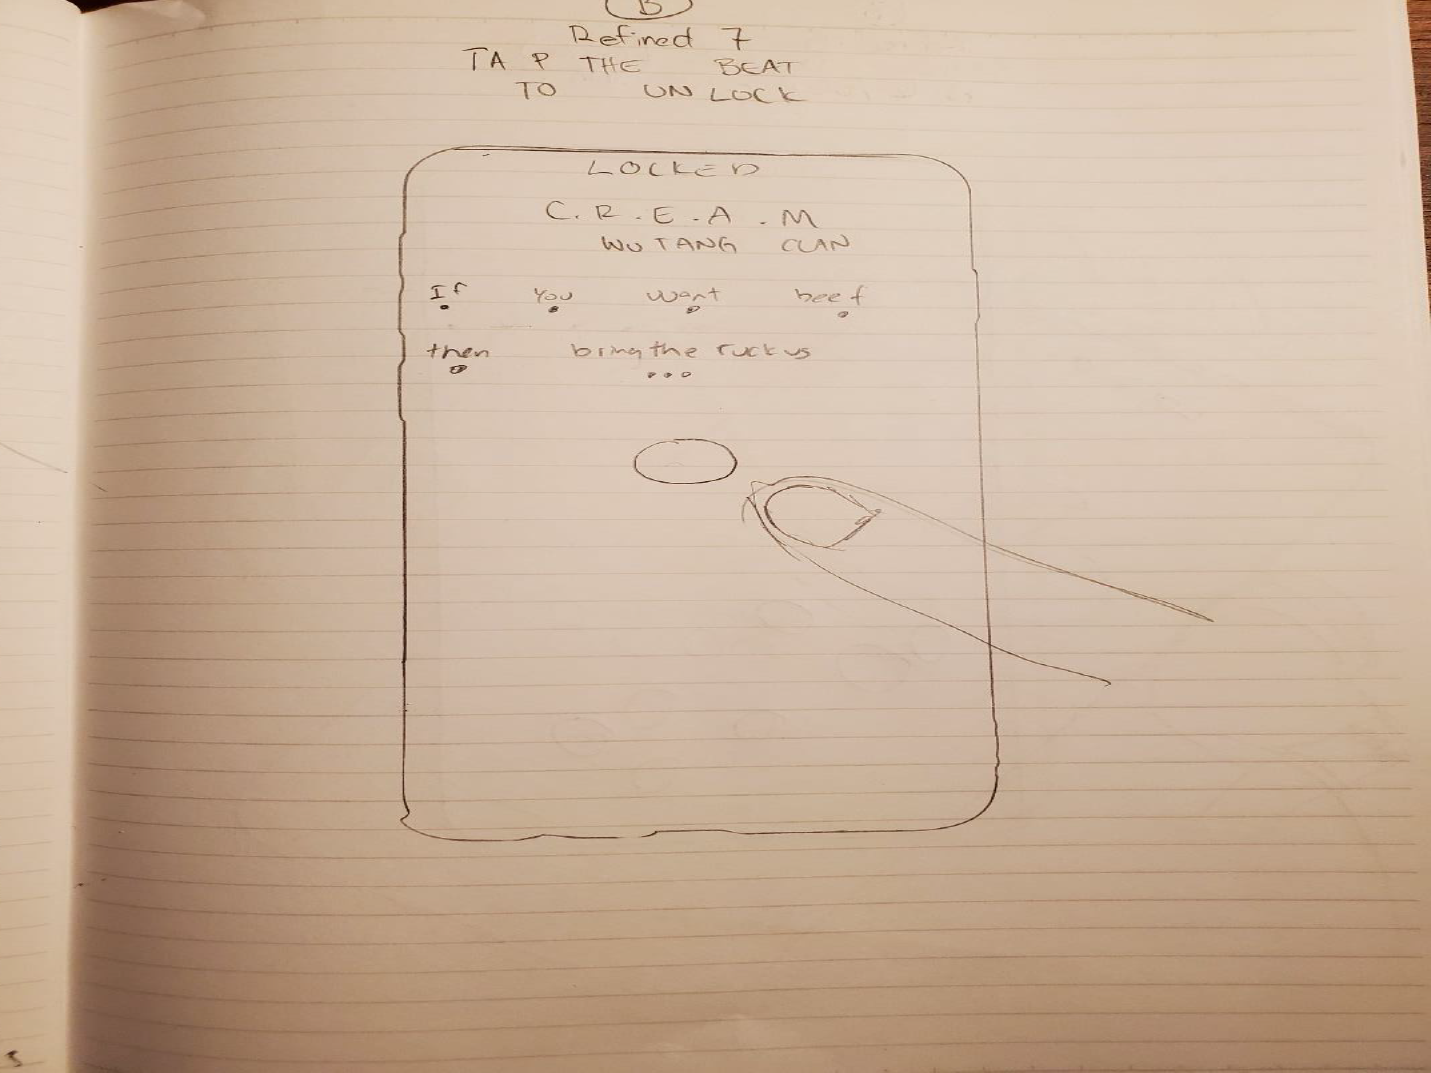 B
Refined 7
TAP THE BEAT
TO UNLOCK
LOCKED
C.R.E.A.M
WU TANG CLAN
If you want beef
then bring the ruckus